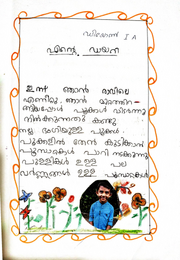 ഡിസംബർ I A
എന്റെ ഡയറി
ഇന്ന് ഞാൻ രാവിലെ
എണീറ്റു. ഞാൻ മുറ്റത്തിറ-
ങ്ങിയപ്പോൾ പൂക്കൾ വിടർന്നു
നിൽക്കുന്നത് കണ്ടു
നല്ല ഭംഗിയുള്ള പൂക്കൾ
പൂക്കളിൽ തേൻ കുടിക്കാൻ
പൂമ്പാറ്റകൾ പാറി നടക്കുന്നു
പുള്ളികൾ ഉള്ള പല
വർണ്ണങ്ങൾ ഉള്ള പൂമ്പാറ്റകൾ